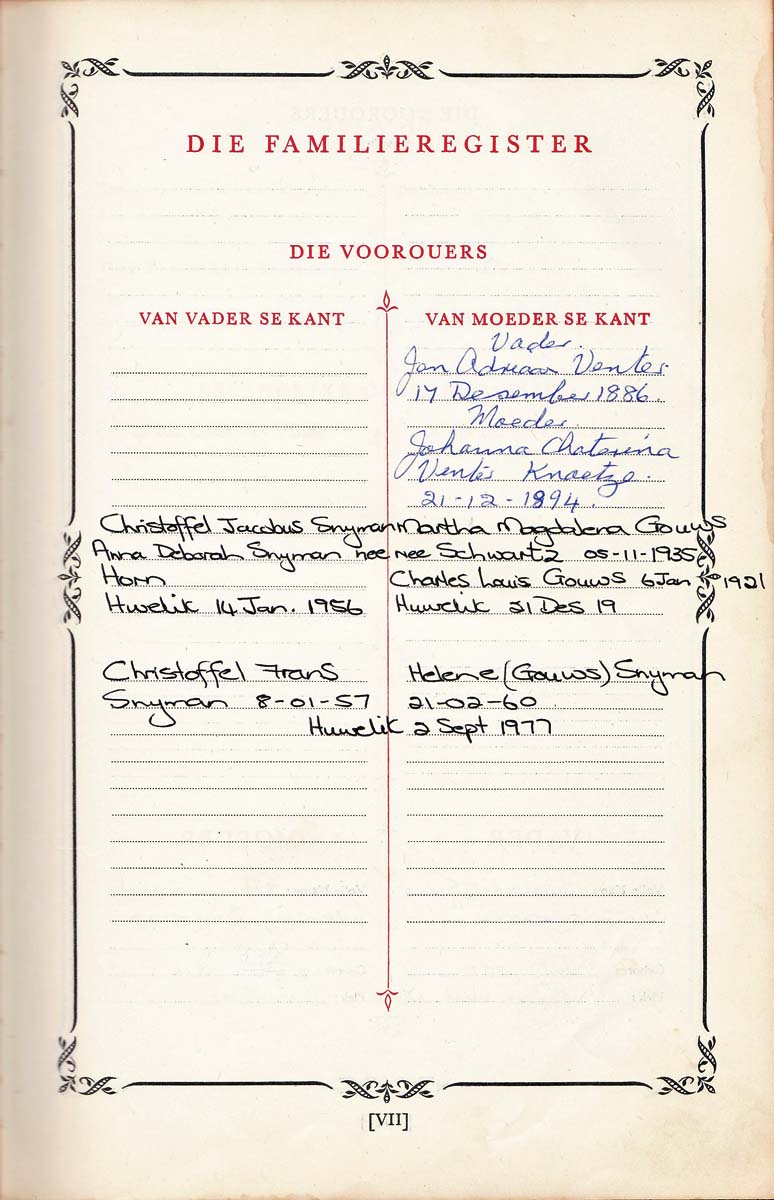 DIE FAMILIEREGISTER
DIE VOOROUERS
VAN VADER SE KANT
Christoffel Jacobus Snyman
Anna Deborah Snyman nee
Horn
Huwelik 14 Jan. 1956
Christoffel Frans
Snyman 8-01-57
VAN MOEDER SE KANT
Vader.
Jan Adriaan Venter.
17 Desember 1886.
Moeder.
Johanna Chaterina
Venter Knoetze.
21-12-1894.
Martha Magdalena Gouws
nee Schwartz 05-11-1935
Charles Louis Gouws 6 Jan 1921
Huwelik 31 Des 19
Helene (Gouws) Snyman
21-02-60
Huwelik 2 Sept 1977
[VII]